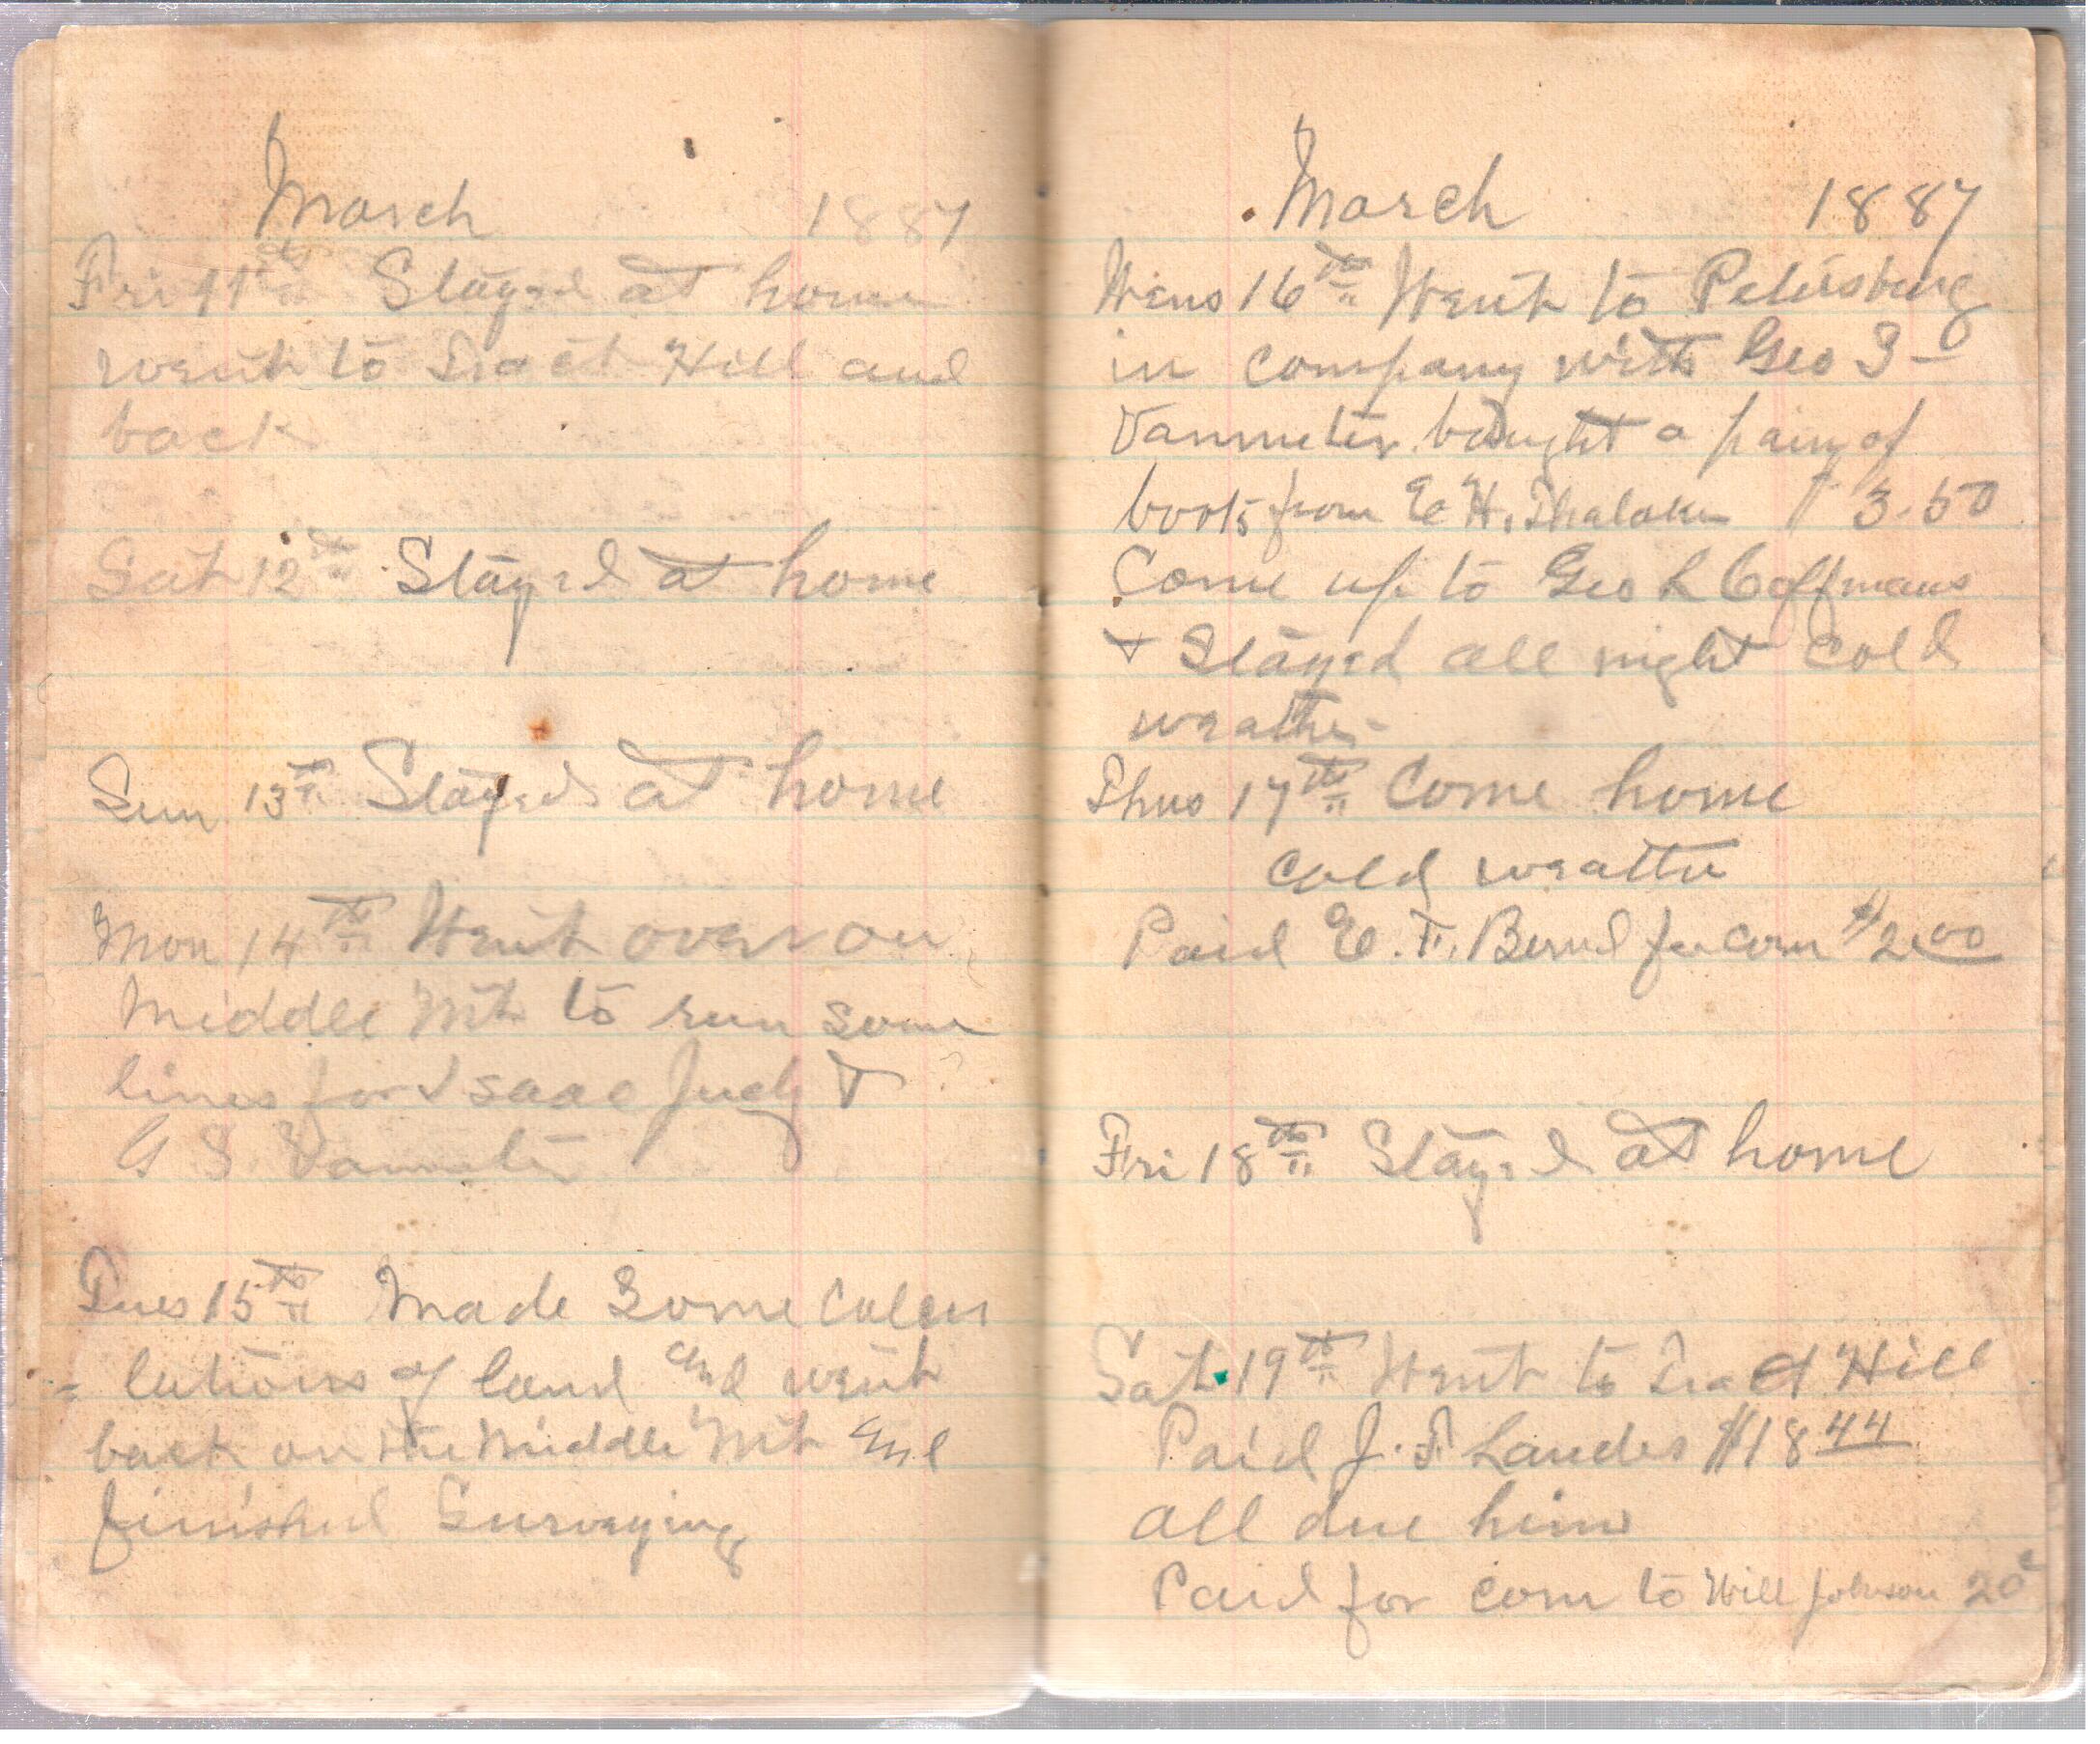 March 1887
Fri 11th Stayed at home
went to Tract Hill and
back
Sat 12th Stayed at home
Sun 13th Stayed at home
Mon 14th Went over on
Middle Mt to run some
lines for Isaac Judy &
G S Vanmeter
Tues 15th Made Some calcu
= lations of land and went
back on the Middle Mt and
finished Surveying
March 1887
Wens 16th Went to Petersburg
in company with Geo S
Vanmeter bought a pair of
boots from E H. $3.50
Come up to Geo L Coffmans
& Stayed all night cold
weather
Thus 17th Come home
cold weather
Paid E. F. for corn $2.00
Fri 18th Stayed at home
Sat. 19th Went to Tract Hill
Paid J. F Landes $18 44
all due him
Paid for corn to Will Johnson 20c